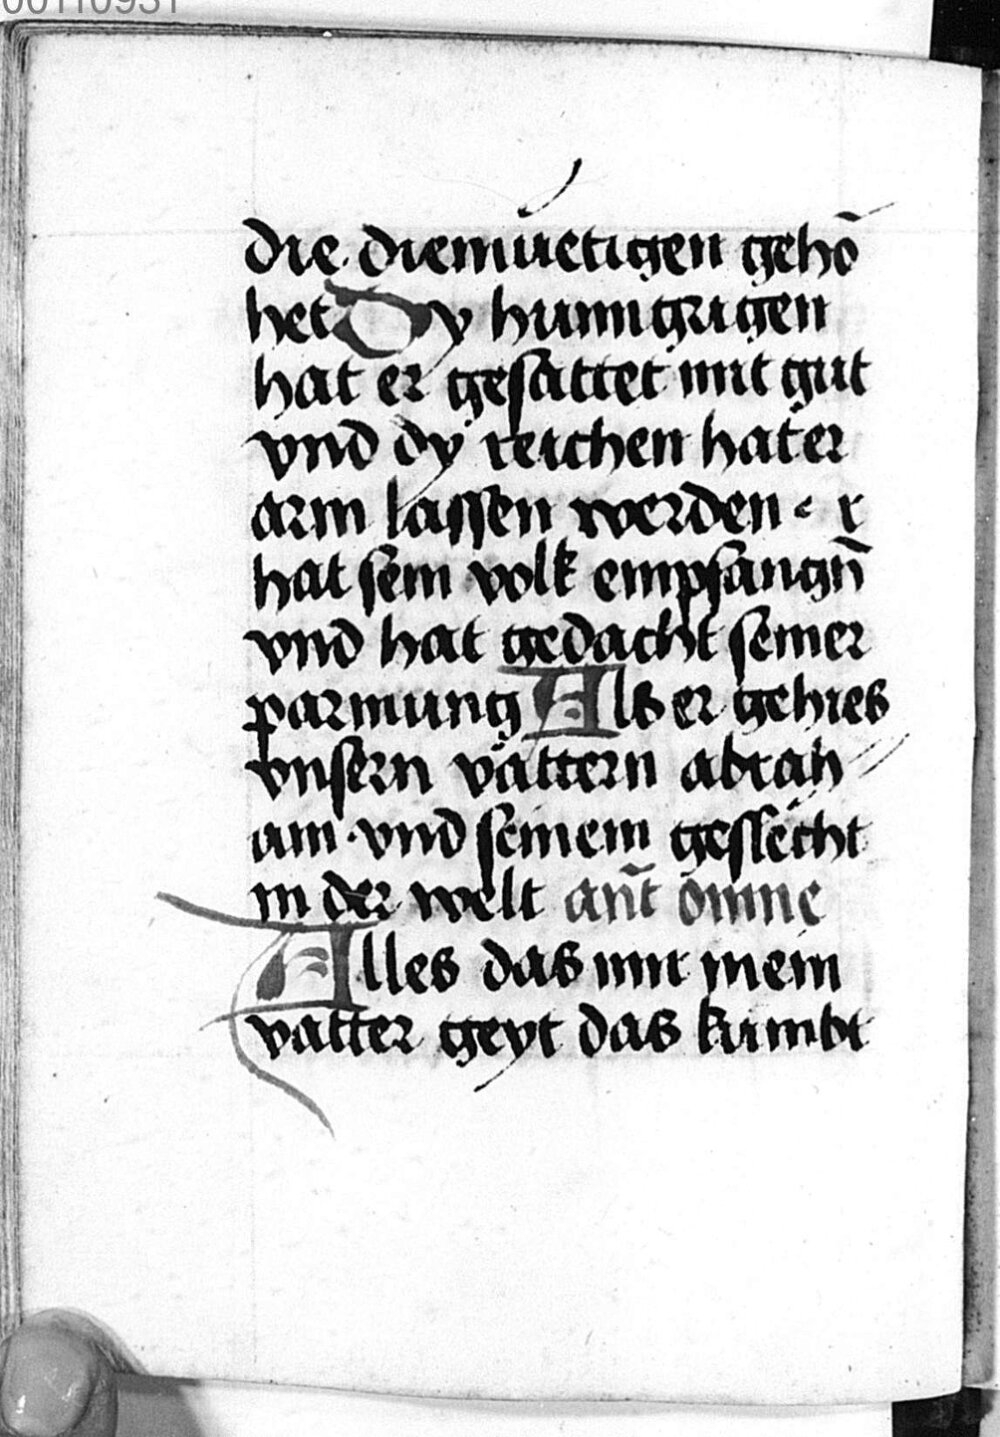 00110931
die diemuetigen gehō
het Dy hunngrigen
hat er gesattet mit gut
vnd dy reichen hat er
arm lassen werden · r
hat sein volk empfangn̄
vnd hat gedacht seiner
parmung Als er gehies
vnsern vättern abrah
am · vnd seinem geslecht
in der welt an̄t omne
Alles das mir mein
vatter geyt das kumbt